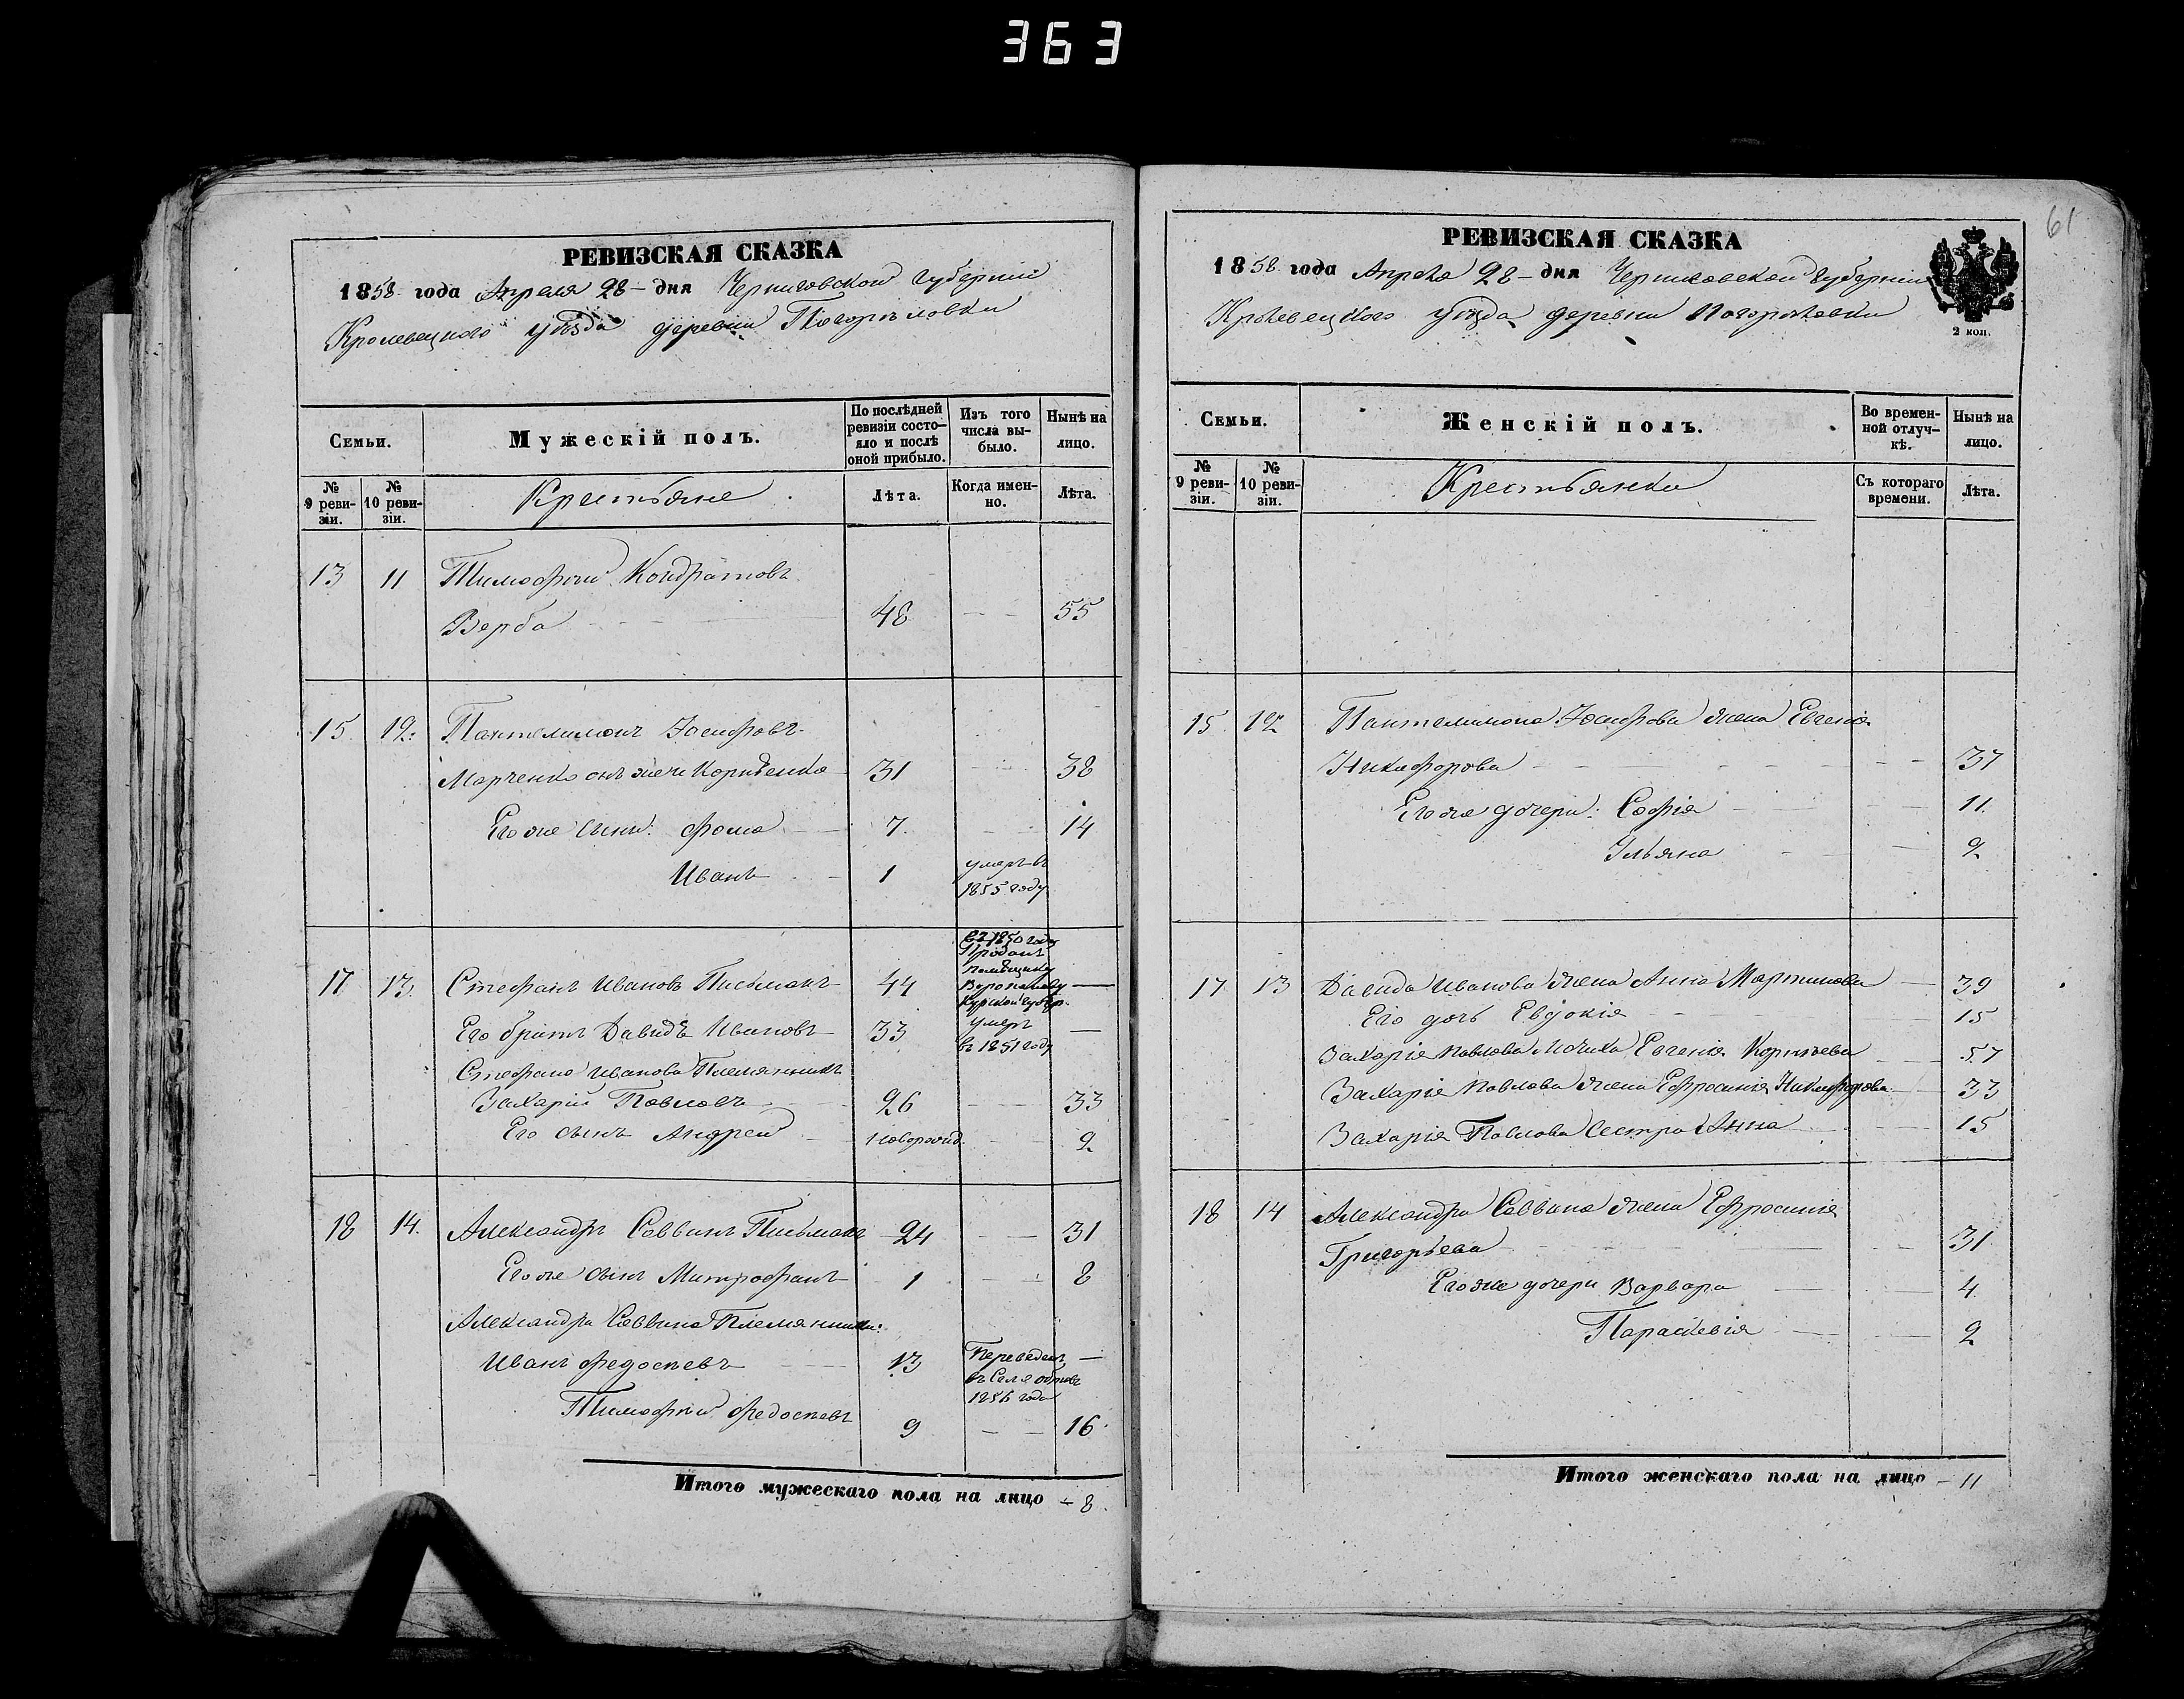 363
РЕВИЗСКАЯ СКАЗКА
1858 года Апреля 28 – дня Черниговской Губернии
Кролевецкого уѣзда деревни Погорѣловки
Семьи.
Мужескій полъ.
По послѣдней ревизіи состояло и послѣ оной прибыло.
Изъ того числа выбыло.
Нынѣ на лицо.
№ 9 ревизіи.
№ 10 ревизіи.
Крестьяне
Лѣта.
Когда именно.
Лѣта.
13 11 Тимофѣй Кондратовъ
Верба 48 — — 55
15 12. Пантелимонъ Іосифовъ
Марченко онъ же и Корніенко 31 38
Его же сыны: Фома 7. 14
Иванъ 1 умеръ въ
1855 году
17 13. Стефанъ Ивановъ Письманъ 44 въ 1850 году
Проданъ
помѣщику
Курской губер. —
Его братъ Давидъ Ивановъ 33 умеръ
въ 1851 году —
Стефана Иванова Племянникъ
Захарій Павловъ 26 — — 33
Его сынъ Андрей новорожд. 9
18 14. Александръ Саввинъ Письманъ 24 — — 31
Его же сынъ Митрофанъ 1 — — 8
Александра Саввина Племянники:
Иванъ Федосѣевъ 13 Переведенъ —
1856 года
Тимофѣй Федосѣевъ 9 — — 16
Итого мужескаго пола на лицо – 8.
61
РЕВИЗСКАЯ СКАЗКА
1858 года Апрѣля 28 – дня Черниговской Губерніи
Кролевецкого уѣзда деревни Погорѣловки
2 коп.
Семьи.
Женскій полъ.
Во временной отлучкѣ.
Нынѣ на лицо.
№ 9 ревизіи.
№ 10 ревизіи.
Крестьянки
Съ котораго времени.
Лѣта.
15 12 Пантелимона Іосифова жена Евгенія
Никифорова — 37
Его же дочери: Софія 11.
Ульяна 9
17 13 Давида Иванова жена Анна Мартинова — 39
Его дочь Евдокія 15
Захарія Павлова Мачиха Евгенія Корнѣева 57
Захарія Павлова жена Ефросинія Никифорова 33
Захарія Павлова Сестра Анна 15
18 14 Александра Саввина жена Ефросинія
Григорьева 31
Его же дочери Варвара 4.
Параскевія 2
Итого женскаго пола на лицо – 11